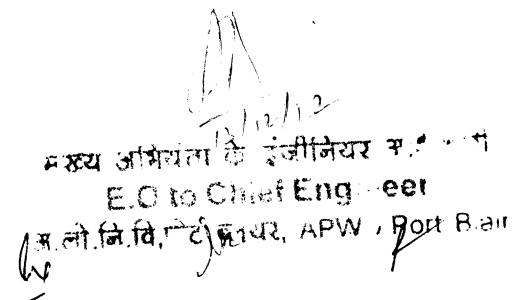 13/12/12
मुख्य अभियंता के इंजीनियर
E.O to Chief Engineer
अ.लो.नि.वि, पोर्ट ब्लायर, APWD, Port Blair